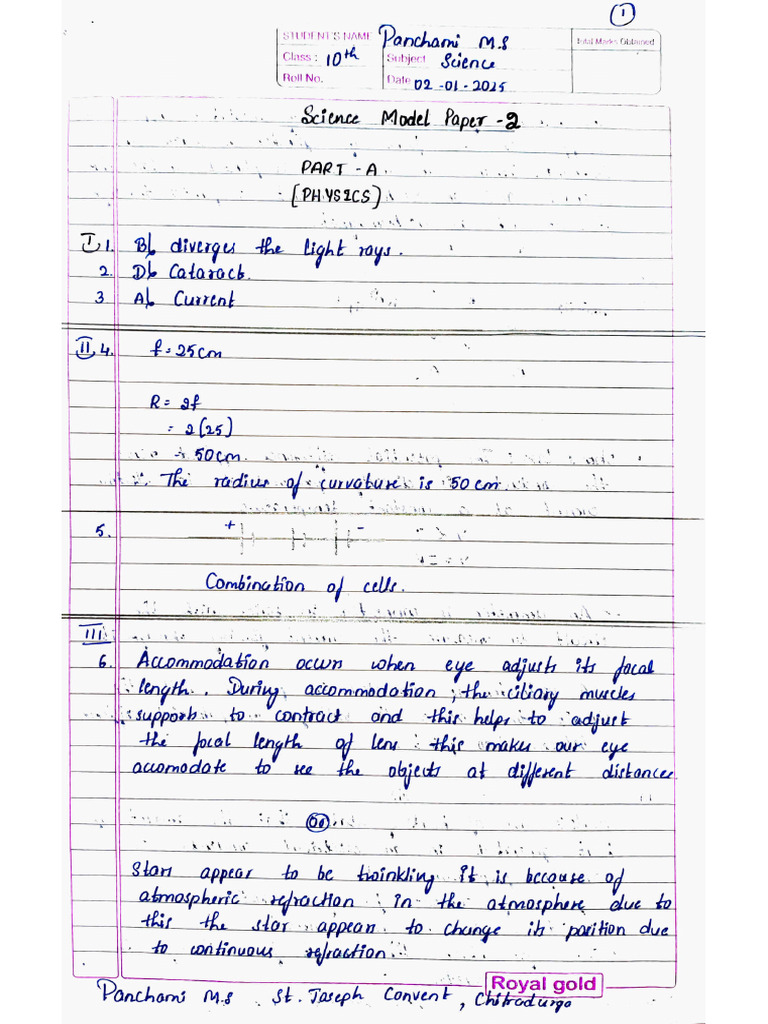 1
STUDENT'S NAME Panchami M.S Total Marks Obtained
Class : 10th Subject Science
Roll No. Date 02-01-2025
Science Model Paper -2
PART - A
[PHYSICS]
I 1. B) diverges the light rays.
2. D) Cataract.
3 A) Current
II 4. f = 25cm
R = 2f
= 2(25)
= 50cm.
∴ The radius of curvature is 50 cm.
5. + -
Combination of cells.
III
6. Accommodation occurs when eye adjusts its focal
length. During accommodation, the ciliary muscles
supports to contract and this helps to adjust
the focal length of lens. this makes our eye
accomodate to see the objects at different distances
Or
Stars appear to be twinkling it is because of
atmospheric refraction. in the atmosphere due to
this the star appears to change its position due
to continuous refraction.
Royal gold
Panchami M.S St. Joseph Convent, Chitradurga